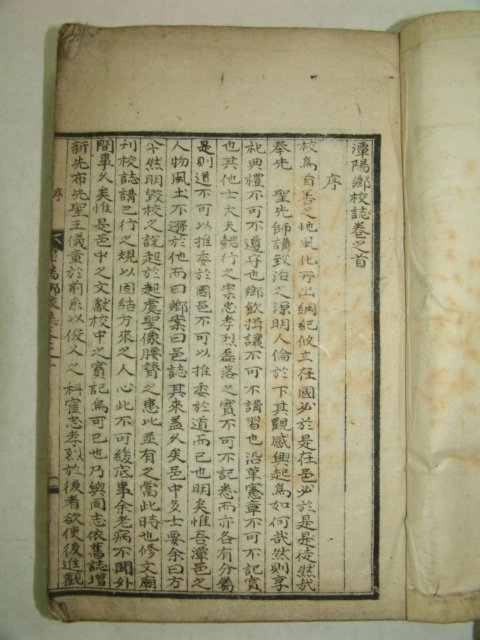 潭陽鄉校誌卷之首
序
校爲首善之地風化所出綱紀攸立在國必於是在邑必於是是徒然哉
奉先聖先師講致治之源明人倫於下其觀感興起爲如何哉然則享
祀典禮不可不遵守也鄉飮揖讓不可不講習也沿革憲章不可不記實
也其他士大夫懿行之案忠孝烈磊落之實不可不記悉而亦各有分屬
是則道不可以推委於國邑不可以推委於道而已也明矣惟吾潭邑之
人物風土不遜於他而曰鄉案曰邑誌其來盖久矣邑中多士要余曰方
今然明毀校之說起於起處聖像腰膂之患此並有之當此時也修文廟
刊校誌講已行之規以固結方來之人心此不可緩底事余老病不聞外
間事久矣惟是邑中之文獻校中之實記爲可已也乃與同志依舊誌增
新先布先聖王儀章於前系以俊乂之科宦忠孝烈於後者欲使後進觀
序